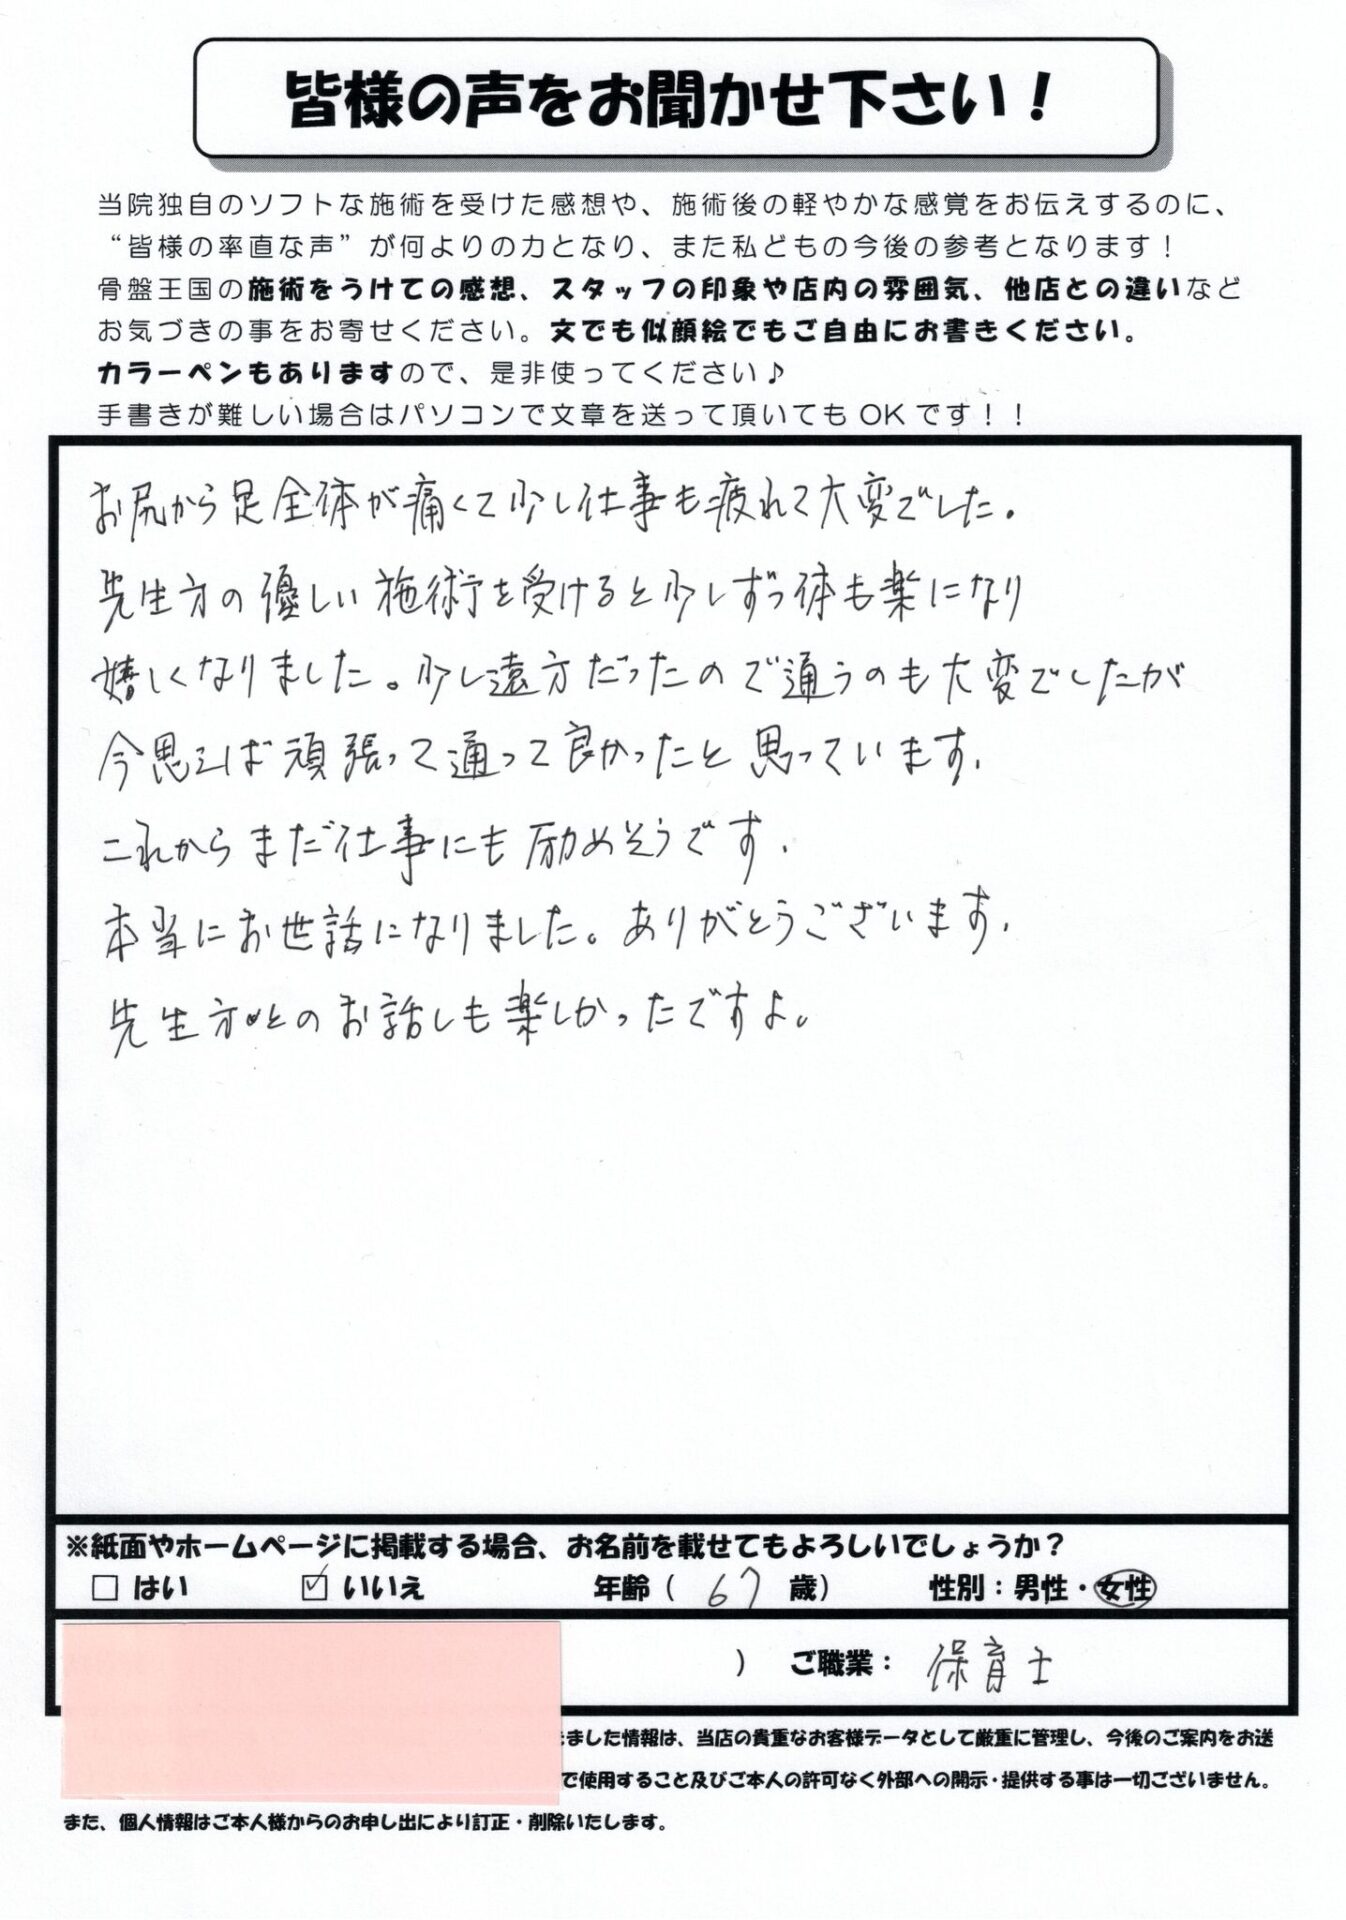 皆様の声をお聞かせ下さい！
当院独自のソフトな施術を受けた感想や、施術後の軽やかな感覚をお伝えするのに、
“皆様の率直な声”が何よりの力となり、また私どもの今後の参考となります！
骨盤王国の施術をうけての感想、スタッフの印象や店内の雰囲気、他店との違いなど
お気づきの事をお寄せください。文でも似顔絵でもご自由にお書きください。
カラーペンもありますので、是非使ってください♪
手書きが難しい場合はパソコンで文章を送って頂いてもOKです！！
お尻から足全体が痛くて少し仕事も疲れて大変でした。
先生方の優しい施術を受けると少しずつ体も楽になり
嬉しくなりました。少し遠方だったので通うのも大変でしたが
今思えば頑張って通って良かったと思っています。
これからまだ仕事にも励めそうです。
本当にお世話になりました。ありがとうございます。
先生方との お話しも楽しかったですよ。
※紙面やホームページに掲載する場合、お名前を載せてもよろしいでしょうか？
□ はい ☑ いいえ 年齢（ 67 歳） 性別：男性・女性
） ご職業： 保育士
ました情報は、当店の貴重なお客様データとして厳重に管理し、今後のご案内をお送
で使用すること及びご本人の許可なく外部への開示・提供する事は一切ございません。
また、個人情報はご本人様からのお申し出により訂正・削除いたします。